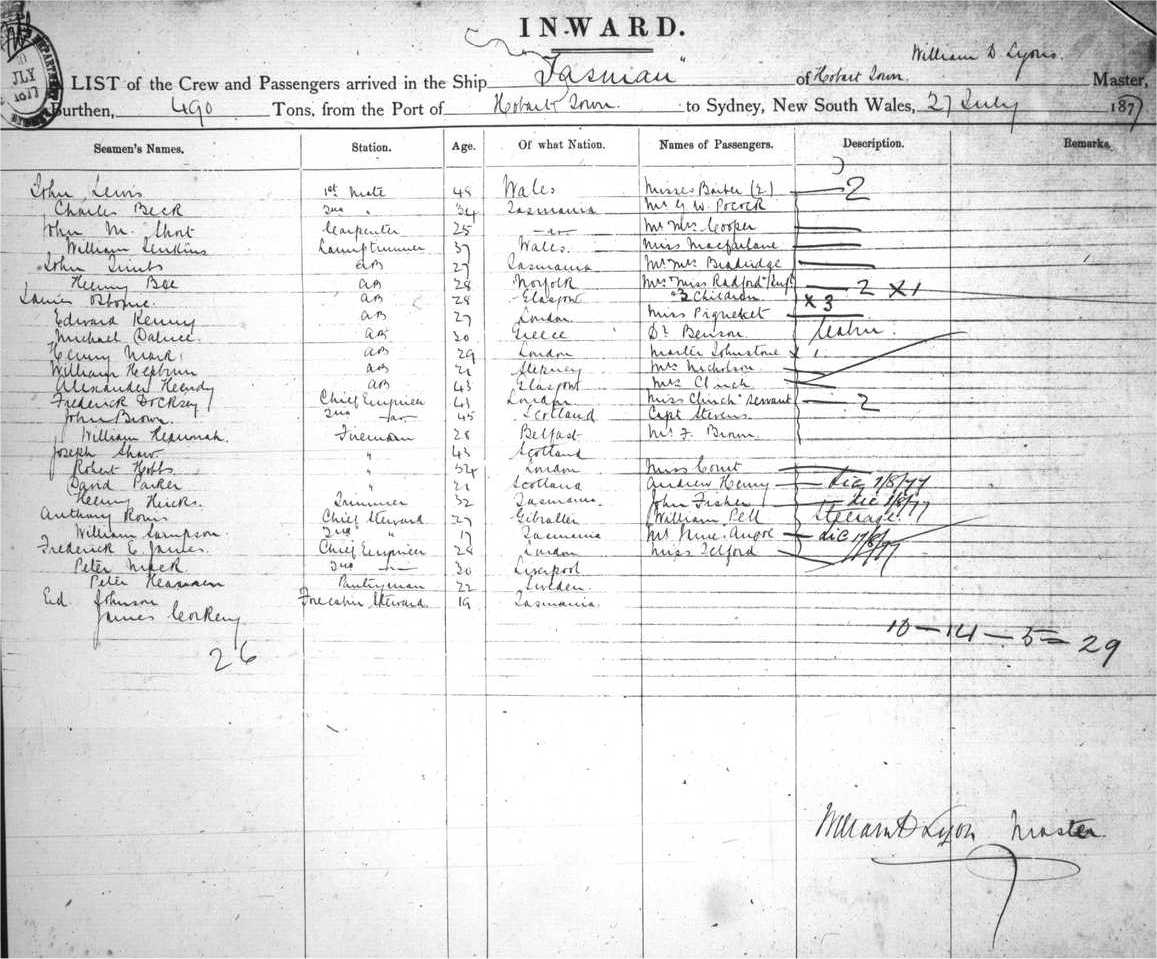 INWARD.
William D Lyons.
LIST of the Crew and Passengers arrived in the Ship "Tasman" of Hobart Town. Master,
Burthen, 490 Tons, from the Port of Hobart Town. to Sydney, New South Wales, 27 July 1877
JLY
Seamen's Names. Station. Age. Of what Nation. Names of Passengers. Description. Remarks.
John Lewis 1st Mate 48 Wales Misses Barber (2) 2
Charles Beck 2nd " 34 Tasmania Mr G. W. Pocock
John M. Short Carpenter 25 -do- Mr Mrs Cooper
William Jenkins Lamptrimmer 37 Wales. Miss Macfarlane
John AB 27 Tasmania Mr Mrs
Henry AB 28 Norfolk Mrs Miss Radford 2 x1
James Osborne. AB 28 Glasgow 3 Children x 3
Edward Kenny AB 27 London Miss Pigueket
Michael AB 30 Greece Dr Benson Cabin
Henry Mark AB 29 London Master Johnstone x 1
William Hepburn AB 21 Mrs Nicholson
Alexander Hendy AB 43 Glasgow Mrs Clinch
Frederick Docksey Chief Engineer 41 London Miss Clinch Servant 2
John Brown. 2nd -do- 45 Scotland Capt Stevens.
William Fireman 28 Belfast Mr F. Brown.
Joseph Shaw " 43 Scotland
Robert Hobbs " 34 London Miss Court
David Parker " 21 Scotland Andrew Henry die 7/8/77
Henry Hicks. Trimmer 32 Tasmania John Fisher die 1/8/77
Anthony Chief Steward 27 Gibralter William Pell Steerage.
William Sampson. 2nd " 17 Tasmania Mr
Frederick E. James. Chief 28 London Miss Telford
Peter Mack 2nd 30 Liverpool
Peter Pantryman 22 Sweden.
Ed. Johnson Forecabin Steward 19 Tasmania.
James Corkeny
26
10 - 14 - 5 = 29
William D Lyon Master